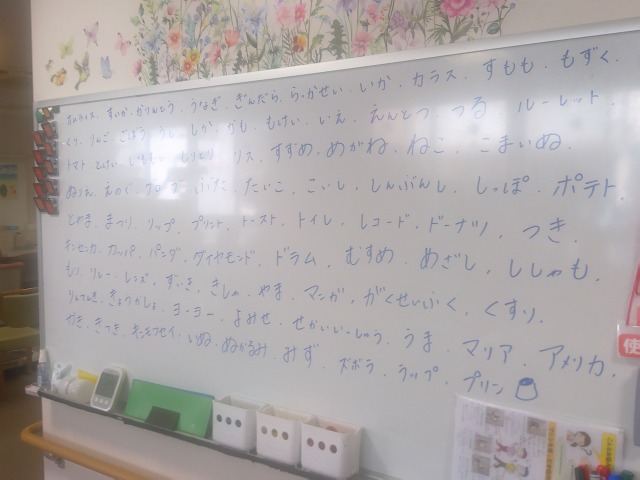 オムライス、すいか、かりんとう、うなぎ、ぎんだら、らっかせい、いか、カラス、すもも、もずく、
くり、りんご、ごぼう、うし、しか、かも、もけい、いえ、えんとつ、つる、ルーレット、
トマト、とけい、しりとり、リス、すずめ、めがね、ねこ、こまいぬ、
ぬりえ、えのぐ、ぶた、たいこ、こいし、しんぶんし、しっぽ、ポテト、
とやま、まつり、リップ、プリント、トースト、トイレ、レコード、ドーナツ、つき、
キンセンカ、カッパ、パンダ、ダイヤモンド、ドラム、むすめ、めざし、ししゃも、
もり、リレー、レンズ、ずいき、きしゃ、やま、マンガ、がくせいふく、くすり、
りんてんき、きょうかしょ、ヨーヨー、よみせ、せかいいっしゅう、うま、マリア、アメリカ、
かき、きつき、キンモクセイ、いぬ、ぬかるみ、みず、ズボラ、ラップ、プリン
使